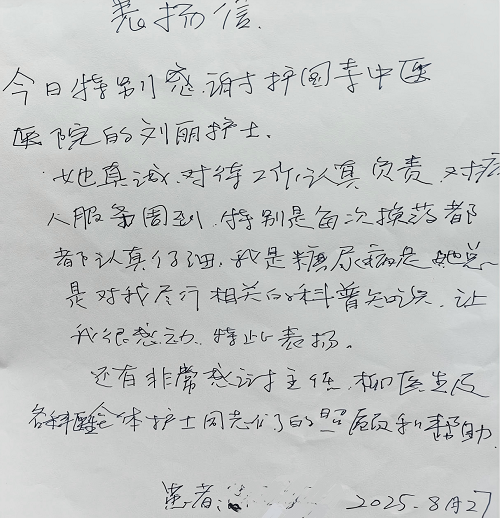 表扬信
今日特别感谢护国寺中医
医院的刘丽护士.
她真诚.对待工作认真负责.对病
人服务周到.特别是每次换药都
都认真仔细.我是糖尿病足她总
是对我尽行相关的科普知识.让
我很感动.特此表扬。
还有非常感谢主任.柳医生及
各科医全体护士同志们的照顾和帮助.
患者:
2025.8月27